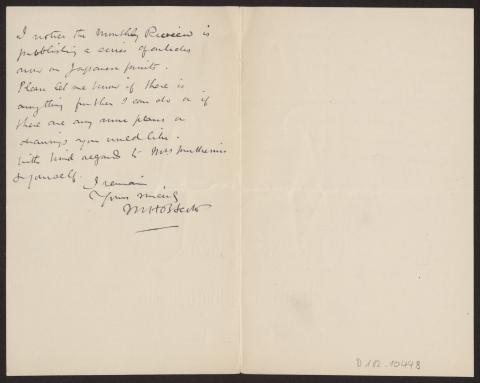 I notice the Monthly Review is
publishing a series of articles
now on Japanese prints.
Please let me know if there is
anything further I can do or if
there are any more plans or
drawings you would like.
With kind regards to Mrs Muthesius
& yourself.
I remain
Yours sincly
M H Baillie Scott
D 102-10448